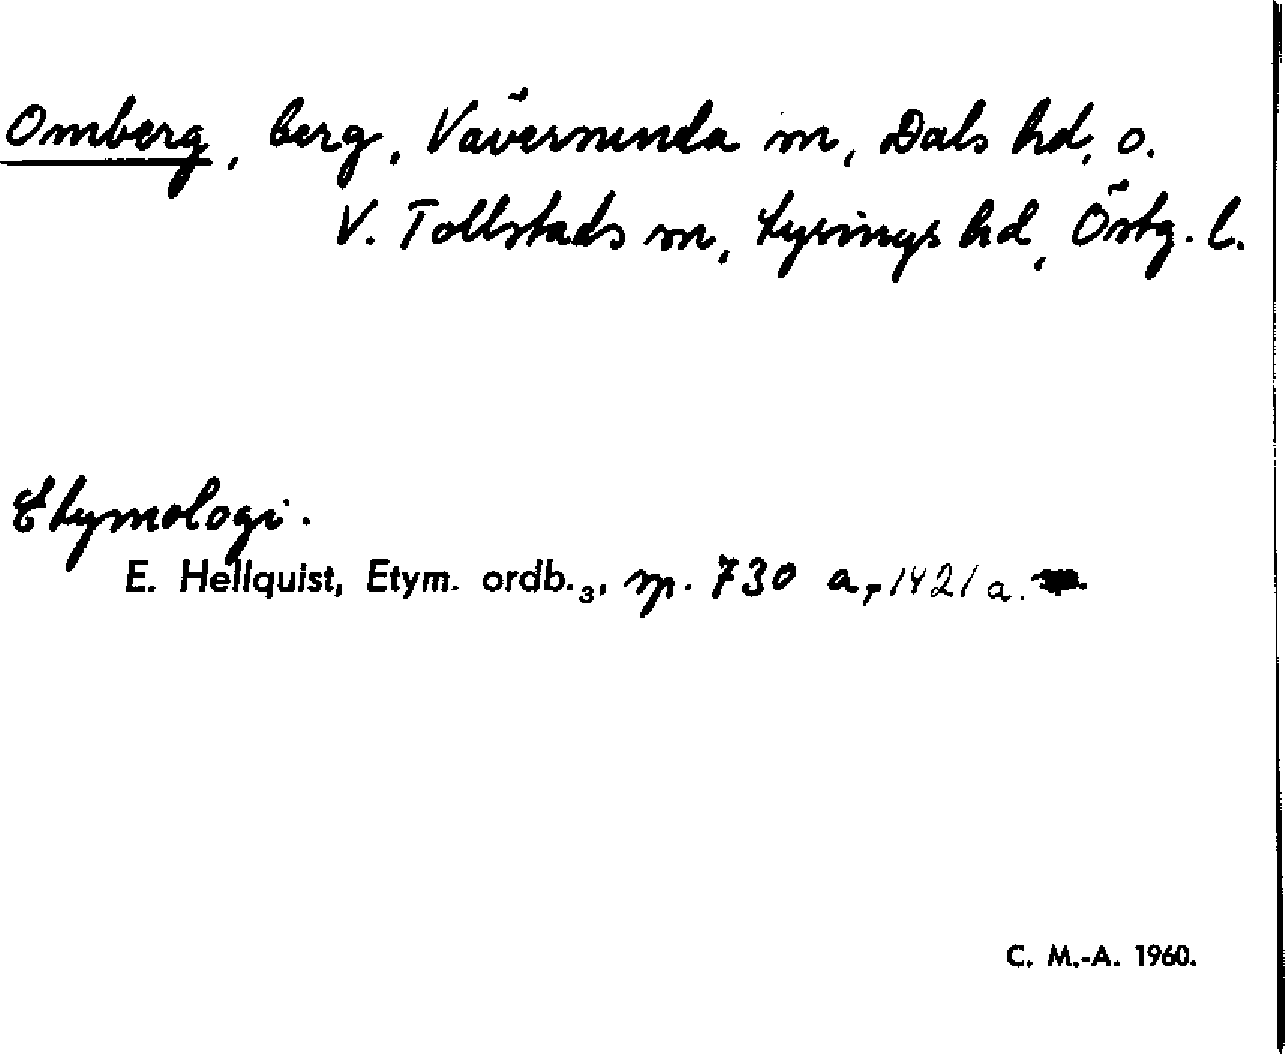 Omberg, berg, Väversunda sn, Dals hd, o.
V. Tollstads sn, Lysings hd, Östg. l.
Etymologi.
E. Hellquist, Etym. ordb.₃, sp. 730 a, 1421 a.
C. M.-A. 1960.